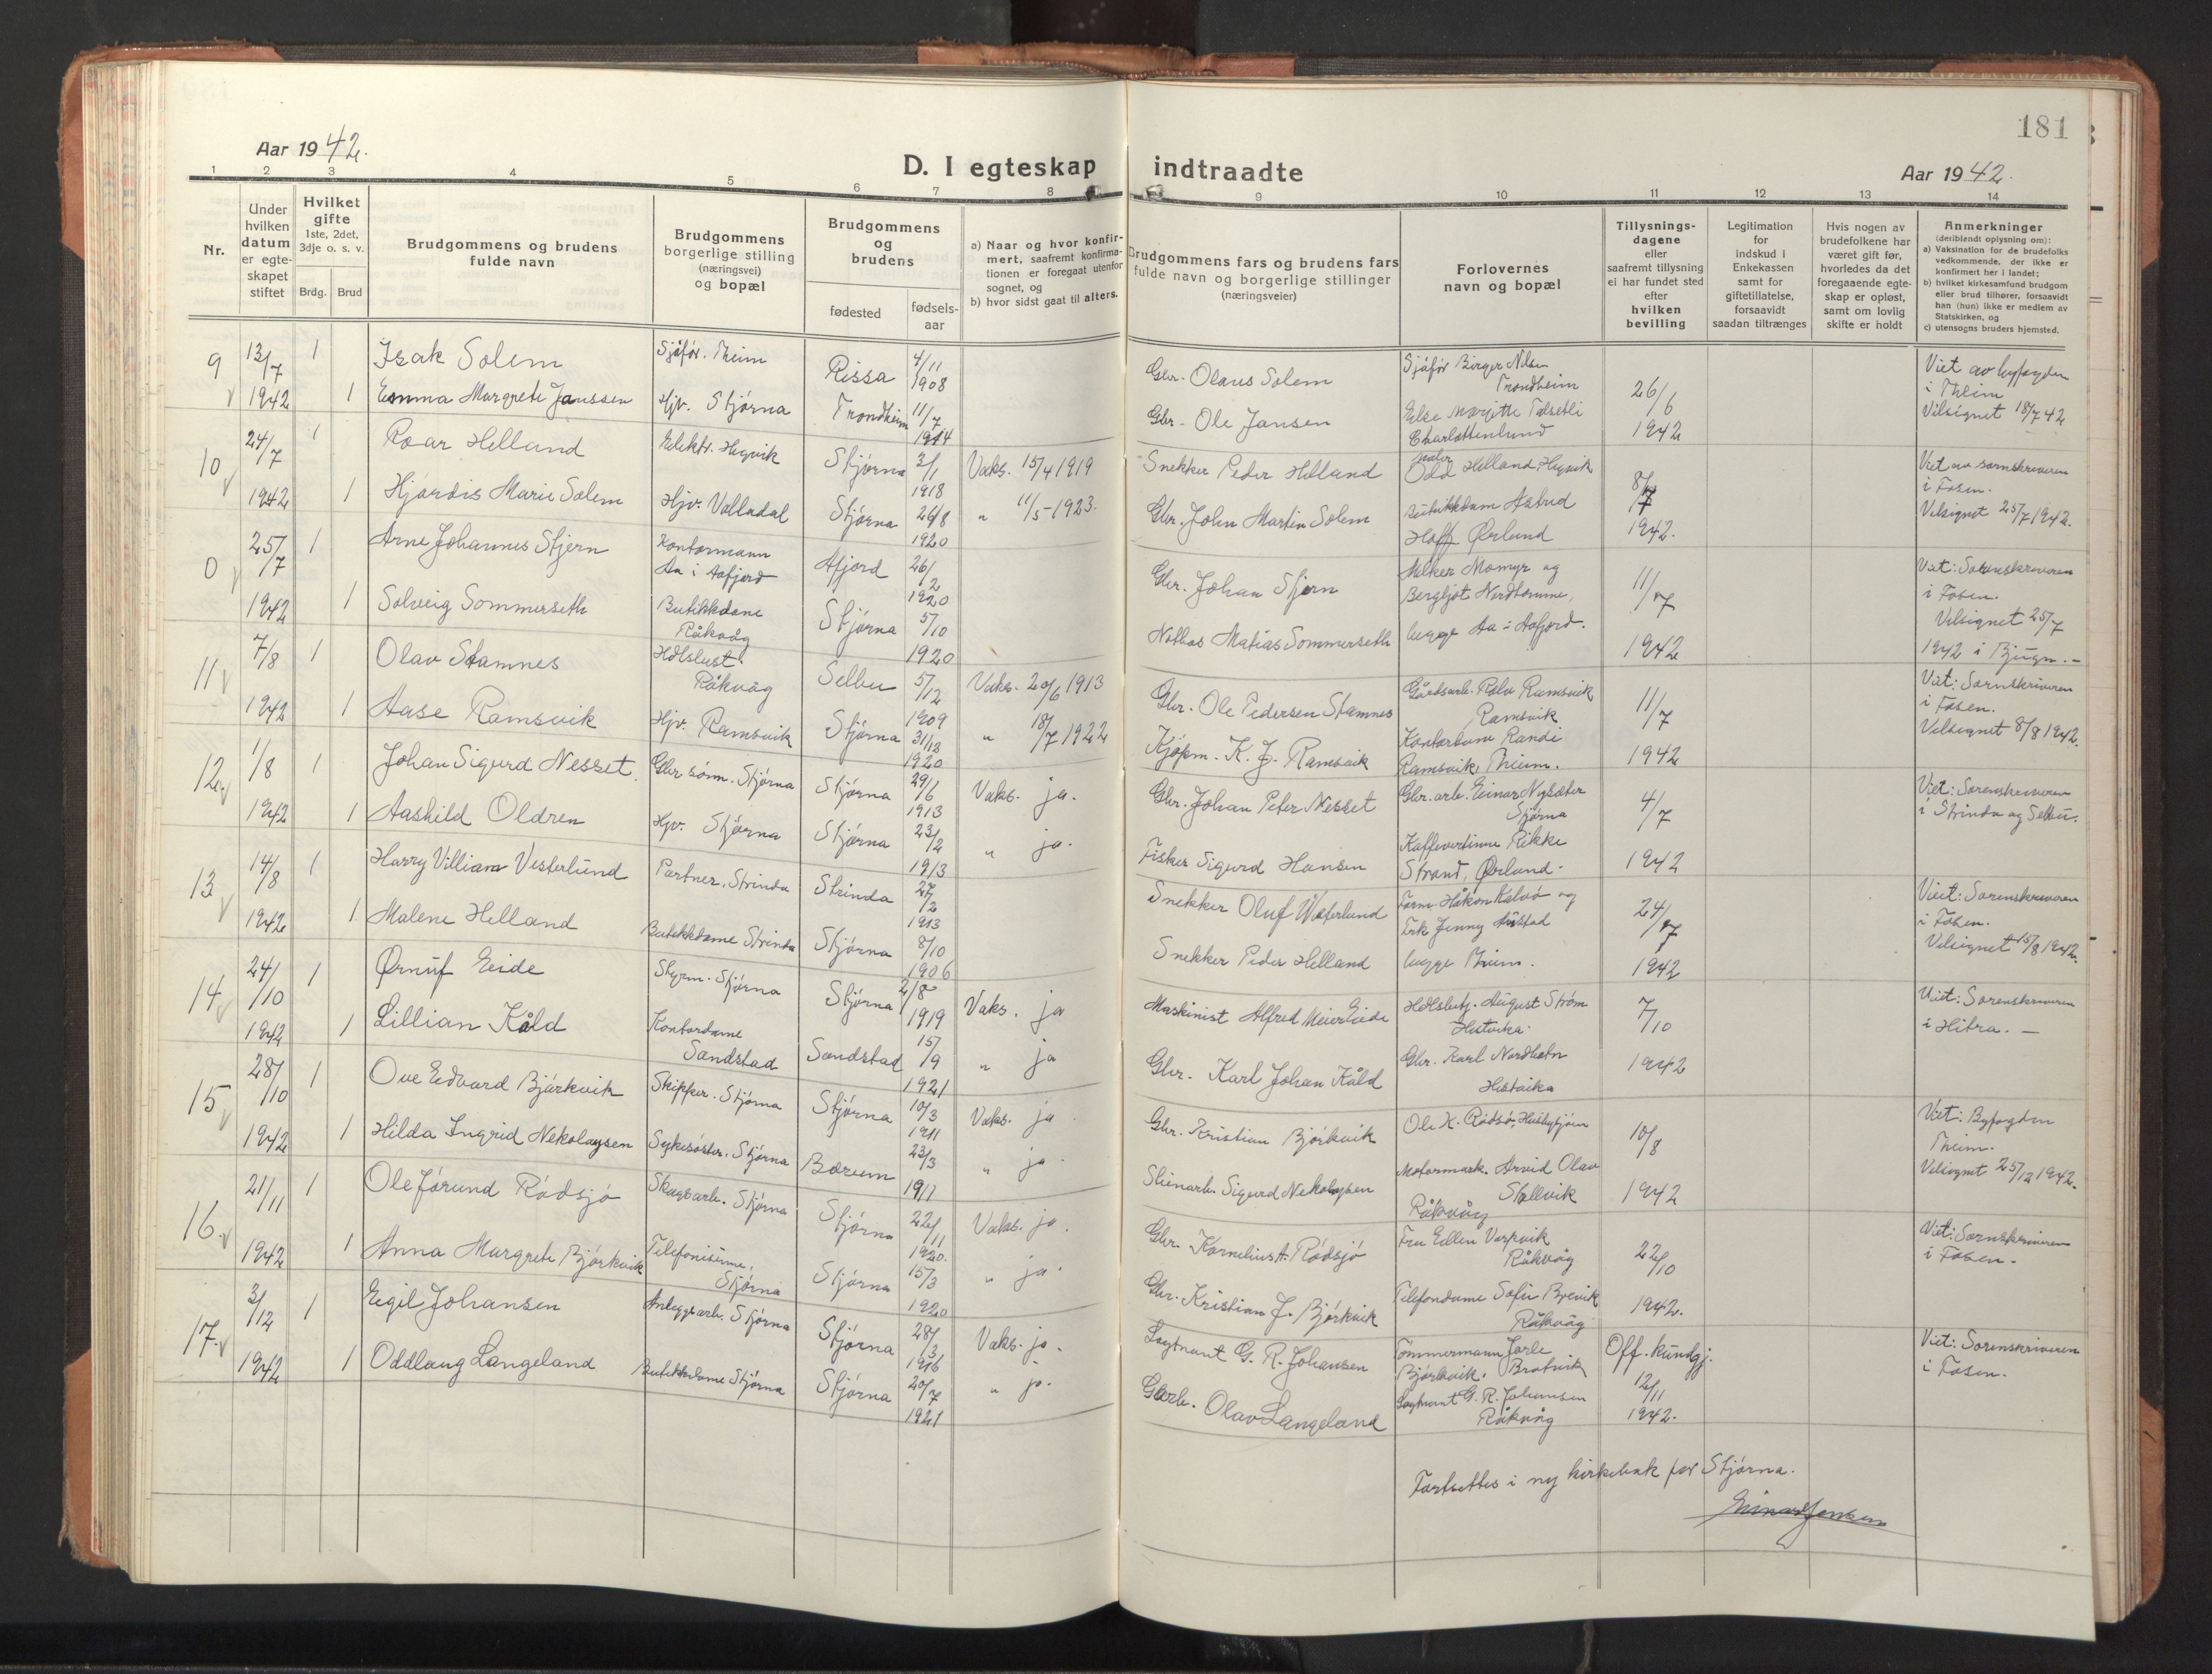 181
Aar 1942.
D. I egteskap indtraadte
Aar 1942.
1 2 3 4 5 6 7 8 9 10 11 12 13 14
Nr.
Under hvilken datum er egteskapet stiftet
Hvilket gifte 1ste, 2det, 3dje o. s. v.
Brdg. Brud
Brudgommens og brudens fulde navn
Brudgommens borgerlige stilling (næringsvei) og bopæl
Brudgommens og brudens
fødested
fødselsaar
a) Naar og hvor konfirmert, saafremt konfirmationen er foregaat utenfor sognet, og
b) hvor sidst gaat til alters.
Brudgommens fars og brudens fars fulde navn og borgerlige stillinger (næringsveier)
Forlovernes navn og bopæl
Tillysningsdagene eller saafremt tillysning ei har fundet sted efter hvilken bevilling
Legitimation for indskud i Enkekassen samt for giftetillatelse, forsaavidt saadan tiltrænges
Hvis nogen av brudefolkene har været gift før, hvorledes da det foregaaende egteskap er opløst, samt om lovlig skifte er holdt
Anmerkninger (deriblandt oplysning om):
a) Vaksination for de brudefolks vedkommende, der ikke er konfirmert her i landet;
b) hvilket kirkesamfund brudgom eller brud tilhører, forsaavidt han (hun) ikke er medlem av Statskirken, og
c) utensogns bruders hjemsted.
9 13/7 1 Isak Solem Sjåfør. Theim Rissa 4/11 1908 Gbr. Olaus Solem Sjåfør Birger Nilsen Trondheim 26/6 Viet av byfogden i Theim
1942 1 Emma Margrete Janssen Hjv. Stjørna Trondheim 11/7 1914 Gbr. Ole Jansen Else Margitte Charlottenlund 1942 Vilsignet 18/7 42
10 24/7 1 Roar Helland Elektr. Heggvik Stjørna 3/1 1918 Vaks. 15/4 1919 Snekker Peder Helland Odd Helland, 8/7 Viet av sorenskriveren i Fosen.
1942 1 Hjørdis Marie Solem Hjv. Valladal Stjørna 26/8 1920 " 11/5-1923. Gbr. John Martin Solem Butikkdam Astrid Hoff Ørland 1942. Velsignet 25/7 1942.
0 25/7 1 Arne Johannes Stjern Kontormann Aa i Aafjord Afjord 26/2 1920 Gbr. Johan Stjern Momyr og Bergljot 11/7 Viet: Sorenskriveren i Fosen.
1942 1 Solveig Sommerseth Butikkdame Råkvåg Stjørna 5/10 1920 Notbas Matias Sommerseth begge Aa i Aafjord. 1942 Velsignet 25/7 1942 i Bjugn.-
11 7/8 1 Olav Stamnes Råkvåg Selbu 5/12 1909 Vaks. 20/6 1913 Gbr. Ole Pedersen Stamnes Gårdsarb. Rolv Ramsvik Ramsvik 11/7 Viet: Sorenskriveren i Fosen.
1942 1 Aase Ramsvik Hjv. Ramsvik Stjørna 31/13 1920 " 18/7 1922 Kjøpm. K. J. Ramsvik Kontordame Randi Ramsvik, Theim. 1942 Velsignet 8/8 1942.
12. 1/8 1 Johan Sigurd Nesset. Gbr. sønn. Stjørna Stjørna 29/6 1913 Vaks. ja. Gbr. Johan Peter Nesset Gbr. arb. Einar Nysæter Stjørna 4/7 Viet: Sorenskriveren i Strinda og Selbu.
1942 1 Aashild Oldren Hjv. Stjørna Stjørna 23/2 1913 " ja. Fisker Sigurd Hansen Kaffevertinne Rikke Strand, Ørland. 1942
13 14/8 1 Harry Villiam Vesterlund Partner, Strinda Strinda 27/2 1913 Snekker Oluf Westerlund Form. Håkon Kalvø og 24/7 Viet: Sorenskriveren i Fosen.
1942 1 Malene Helland Butikkdame Strinda Stjørna 8/10 1906 Snekker Peder Helland Frk Jenny Aastad begge Theim. 1942 Velsignet 15/8 1942.
14 24/10 1 Ørnulf Eide Styrm. Stjørna Stjørna 2/8 1919 Vaks. ja Maskinist Alfred Meier Eide August Strøm Hestvika. 7/10 Viet: Sorenskriveren i Hitra. -
1942 1 Lillian Kåld Kontordame Sandstad Sandstad 15/9 1921 " ja Gbr. Karl Johan Kåld Gbr. Karl Nordbotn Hestvika 1942
15 28/10 1 Ove Edvard Bjørkvik Skipper. Stjørna Stjørna 10/3 1911 Vaks. ja Gbr. Kristian Bjørkvik Ole K. Rødsjø, Husbysjøen 10/8 Viet: Byfogden Theim.
1942 1 Hilda Ingrid Nekolaysen Sykesøster. Stjørna Bærum 23/3 1911 " ja. Stenarb. Sigurd Nekolaysen Motormask. Arvid Olav Stallvik Råkvåg 1942 Velsignet 25/12 1942.
16. 21/11 1 Ole Jørund Rødsjø Skogsarb. Stjørna Stjørna 22/11 1920. Vaks. ja. Gbr. Kornelius A. Rødsjø Fru Ellen Verpvik Råkvåg 22/10 Viet: Sorenskriveren i Fosen.
1942 1 Anna Margrete Bjørkvik Telefonistinne, Stjørna Stjørna 15/3 1920 " ja Gbr. Kristian J. Bjørkvik Telefondame Sofie Brevik Råkvåg 1942.
17. 3/12 1 Eigil Johansen Anleggsarb. Stjørna Stjørna 28/3 1916 Vaks. ja. Løytnant G. R. Johansen Tømmermann Jarle Bjørkvik. Brotvik Off. kundgj. Viet: Sorenskriveren i Fosen.
1942 1 Oddlaug Langeland Butikkdame Stjørna Stjørna 20/7 1921 " ja. Gbrb. Olav Langeland Løytnant G. R. Johansen Råkvåg 12/11 1942.
Fortsettes i ny kirkebok for Stjørna.
Einar Jensen